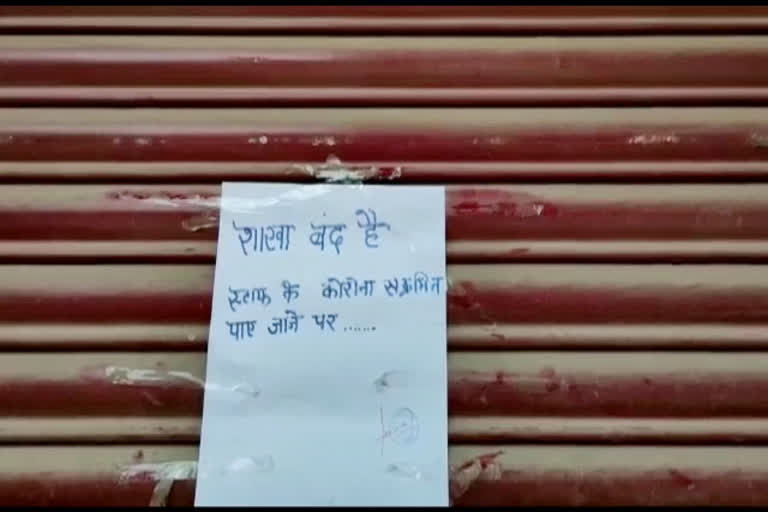 शाखा बंद है
स्टाफ के कोरोना संक्रमित
पाए जाने पर......